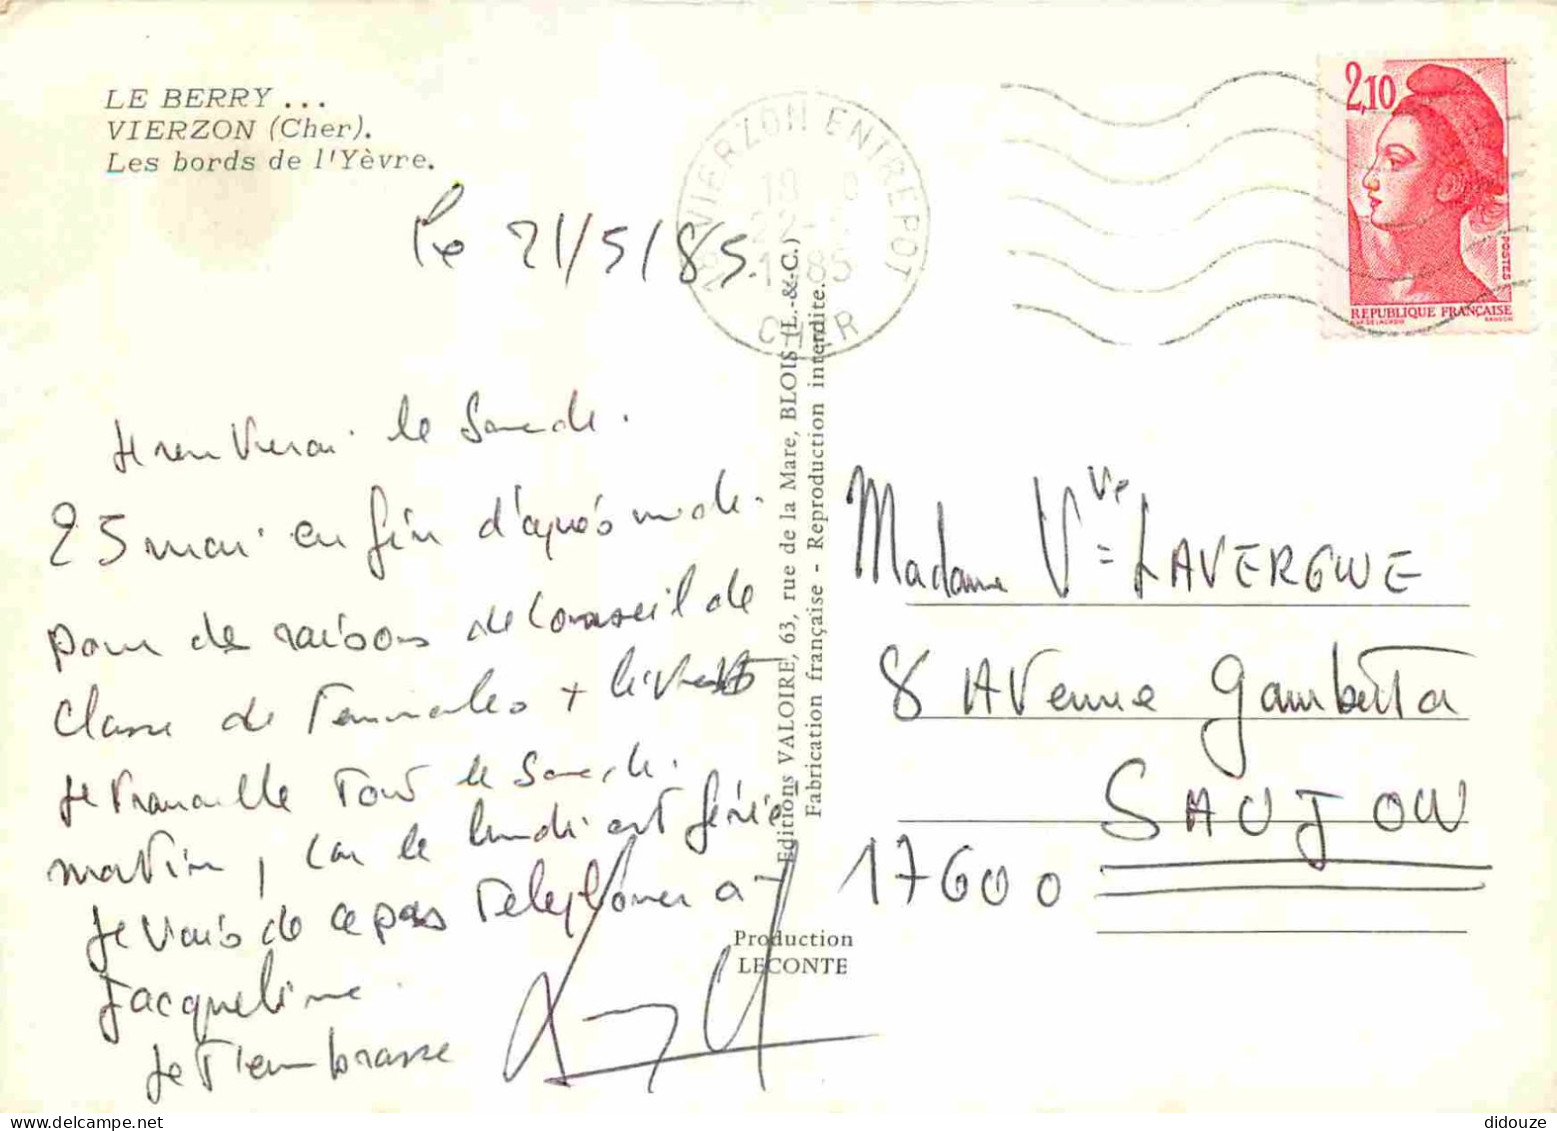 LE BERRY ...
VIERZON (Cher).
Les bords de l'Yèvre.
VIERZON ENTREPOT
18
22-
1985
CHER
2,10
POSTES
REPUBLIQUE FRANÇAISE
Le 21/5/85.
Je reviendrai le Samedi
25 mai en fin d'après midi
pour des raisons de Conseil de
Classe de Terminales + livrets
Je travaille tout le Samedi
matin, car le lundi est férié
Je vais de ce pas téléphoner à
Jacqueline.
Je t'embrasse
Editions VALOIRE, 63, rue de la Mare, BLOIS (L.-&-C.)
Fabrication française - Reproduction interdite.
Production
LECONTE
Madame Vve LAVERGNE
8 Avenue Gambetta
SAUJON
17600
didouze